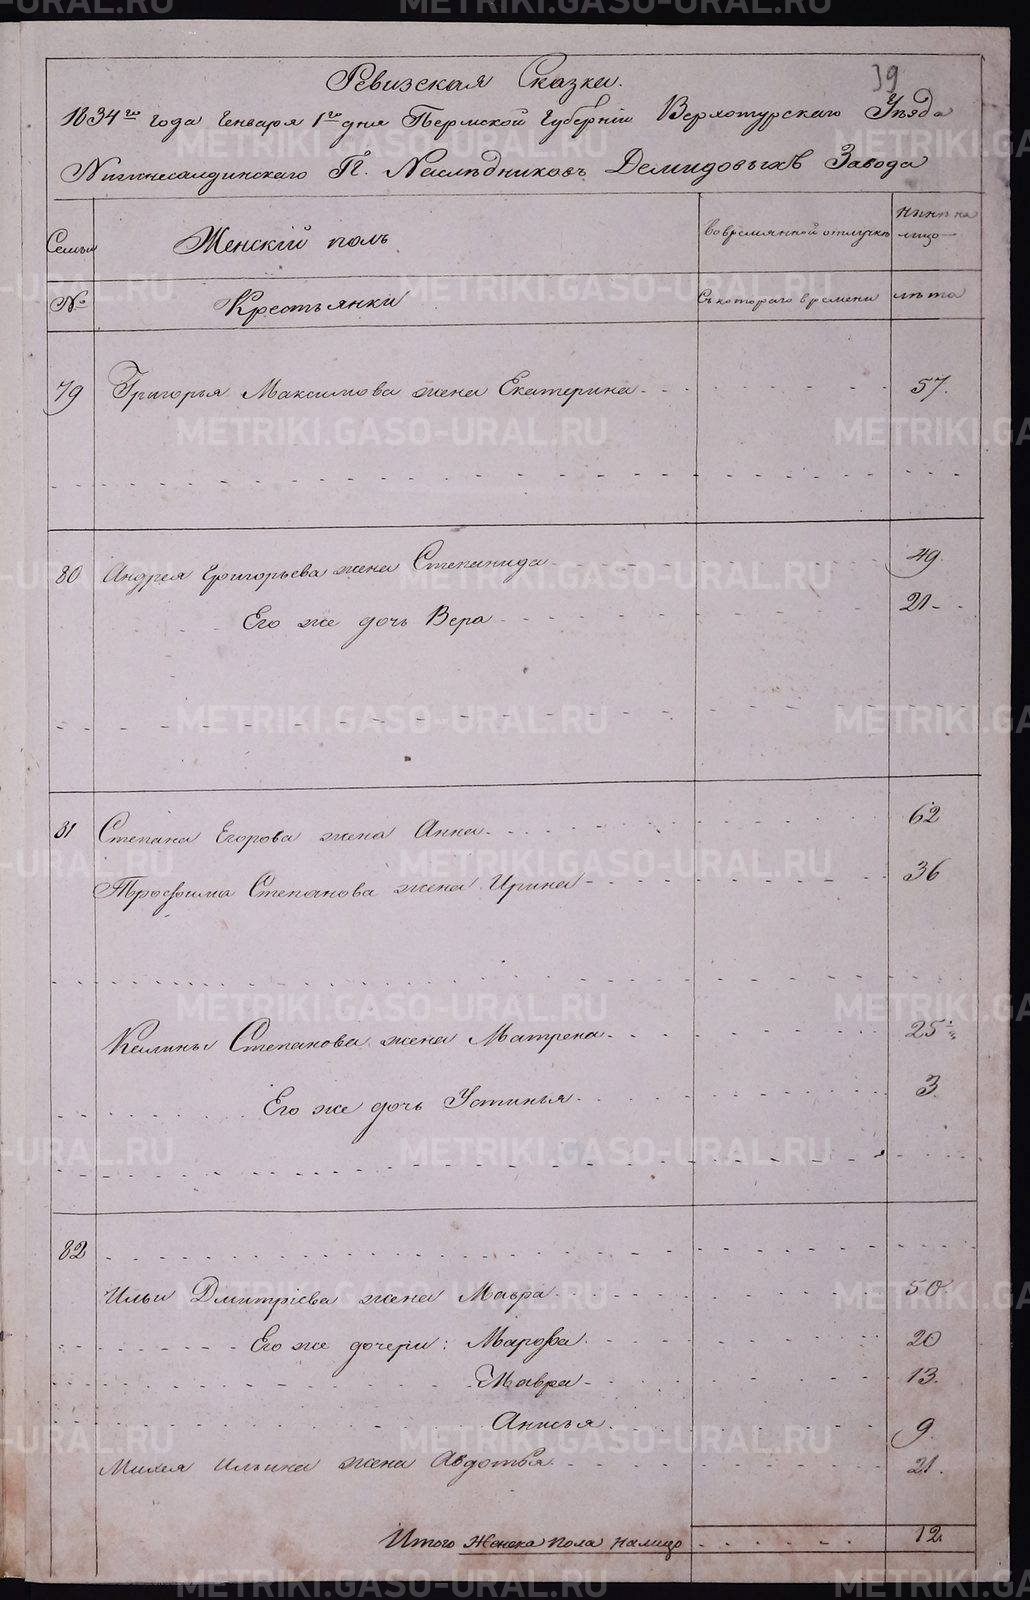 39
Ревизская Сказка.
1834го года Генваря 1го дня Пермской Губерніи Верхотурскаго Уѣзда
Нижнесалдинскаго Г. Наслѣдниковъ Демидовыхъ Завода
Семьи
Женскій полъ
Во временной отлучкѣ
ныне на лицо
№
Крестьянки
Съ котораго времени
лѣта
79 Григорья Максимова жена Екатерина 57.
80 Андрея Григорьева жена Степанида 49.
Его же дочь Вера 21
81 Степана Егорова жена Анна 62
Трофима Степанова жена Ирина 36
Калины Степанова жена Матрена 25
Его же дочь Устинья 3
82
Ильи Дмитріева жена Мавра 50
Его же дочери: Марфа 20
Мавра 13.
Анисья 9.
Михея Ильина жена Авдотья 21.
Итого Женска пола налицо 12
METRIKI.GASO-URAL.RU